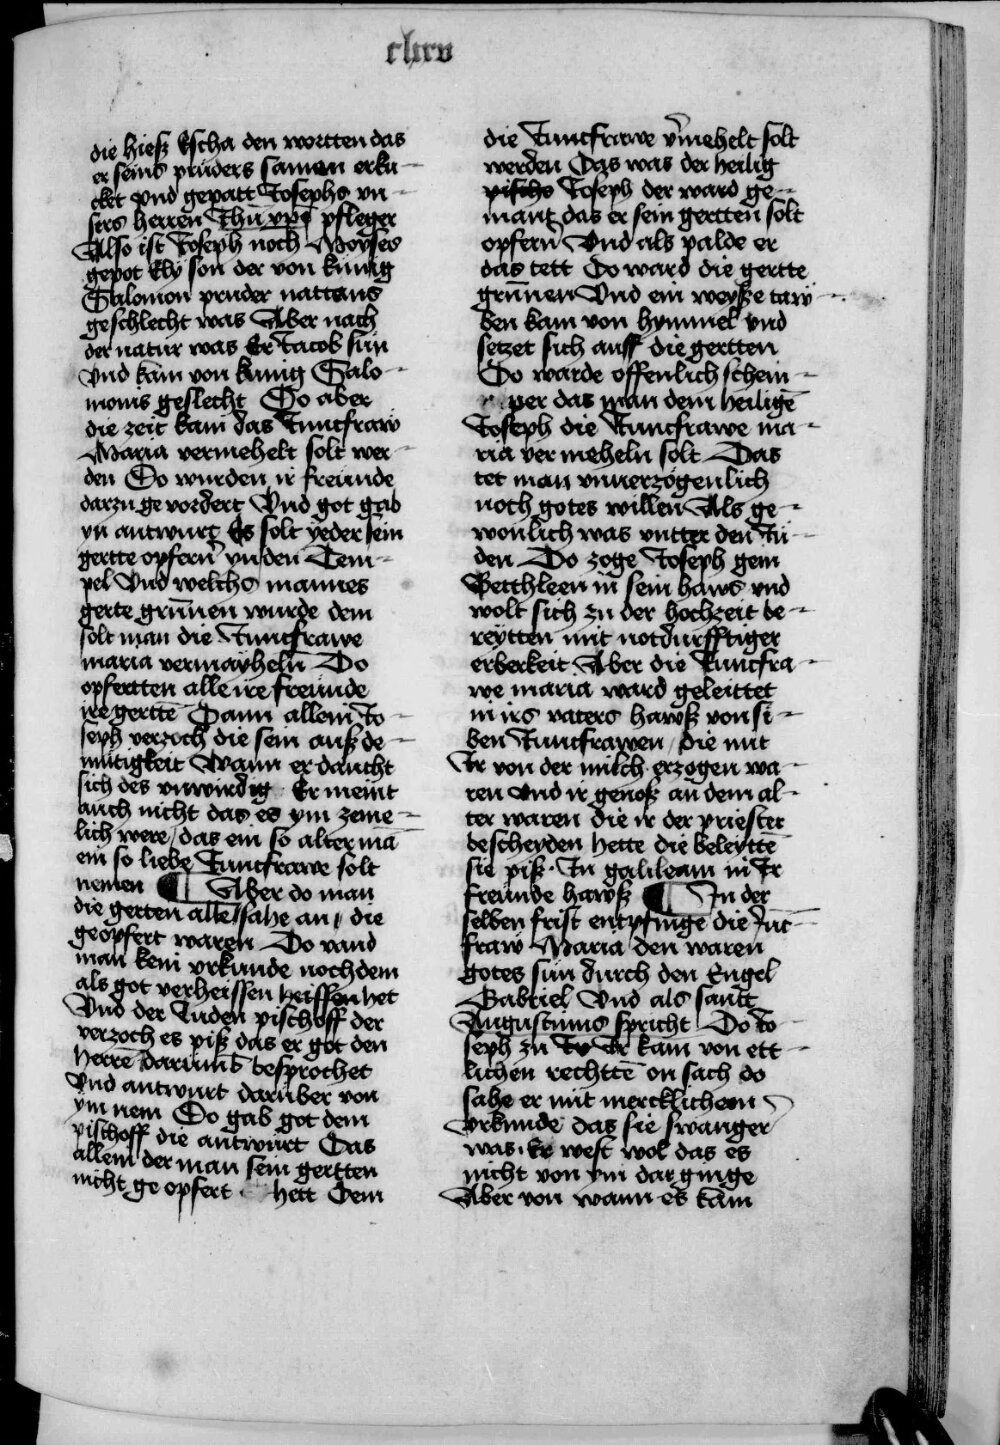 clxxv
die hiesz Escha den wortten das
er seins pruders samen erku-
cket vnd gepatt Josephs vn-
sers herren Jhū xp̄i pfleger
Also ist Joseph noch Moyses
gepot Ely son der von kunig
Salomon pruder nattans
geschlecht was Aber nach
der natur was Er Jacob sun
vnd kam von kunig Salo-
monis geslecht Do aber
die zeit kam das Junckfraw
Maria vermehelt solt wer-
den Do wurden ir freunde
darzu ge vordert Vnd got gab
yn antwurt Es solt yeder sein
gertte opfern yn den Tem-
pel Vnd welchs mannes
gerte grunen wurde dem
solt man die Junckfrawe
maria vermayheln Do
opfertten alle ire freunde
ire gertte Dann allein Jo-
seph verzoch die sein ausz de-
mutigkeit Wann er daucht
sich des vnwirdig Er meint
auch nicht das es ym zeme-
lich were / das ein so alter mā
ein so liebe Junckfrawe solt
nemen ¶ Aber do man
die gerten alle sahe an / die
geopfert waren Do vand
man kein vrkunde noch dem
als got verheissen heissen het
Vnd der Juden pischoff der
verzoch es pisz das er got den
herrē darumb besprochet
Vnd antwurt daruber von
ym nem Do gab got dem
pischoff die antwurt Das
allein der man sein gertten
nicht ge opfert hett Dem
die Junckfrawe v̄mehelt solt
werden Das was der heilig
pischo Joseph der ward ge-
mant das er sein gertten solt
opfern Vnd als palde er
das tett Do ward die gertte
grunen Vnd ein weysze taw-
ben kam von hymmel vnd
setzet sich auff die gertten
Do warde offenlich schein-
per das man dem heiligē
Joseph die Junckfrawe ma-
ria ver meheln solt Das
tet man vnuerzogenlich
noch gotes willen Als ge-
wonlich was vntter den Ju-
den Do zoge Joseph gein
Betthleen in sein haws vnd
wolt sich zu der hochzeit be-
reytten mit notdurfftiger
erberkeit Aber die Junckfra-
we maria ward geleittet
in irs vaters hawsz von si-
ben Junckfrawen / die mit
Ir von der milch erzogen wa-
ren vnd ir genosz an dem al-
ter waren die ir der priester
bescheyden hette die beleyttē
sie pisz In galileam in Ir
freunde hawsz ¶ In der
selben frist entpfinge die Juc-
fraw Maria den waren
gotes sun durch den Engel
Gabriel Vnd als santt
Augustinus spricht Do Jo-
seph zu Ir kam von ett-
lichen rechttē on sach do
sahe er mit mercklichem
vrkunde das sie swanger
was Er west wol das es
nicht von ym dar ginge
Aber von wann es kam